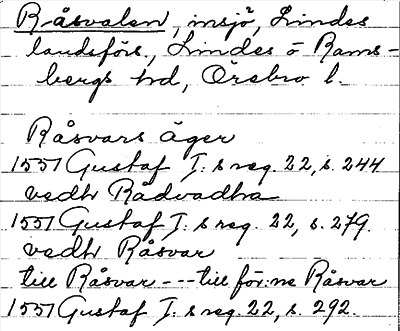 Råsvalen, insjö, Lindes
landsförs., Lindes o Rams-
bergs hd, Örebro l.
Råsvars äger
1551 Gustaf I:s reg. 22, s. 244
vedh Rådvadha
1551 Gustaf I:s reg. 22, s. 279.
vedh Råsvar
till Råsvar --- till för:ne Råsvar
1551 Gustaf I:s reg. 22, s. 292.